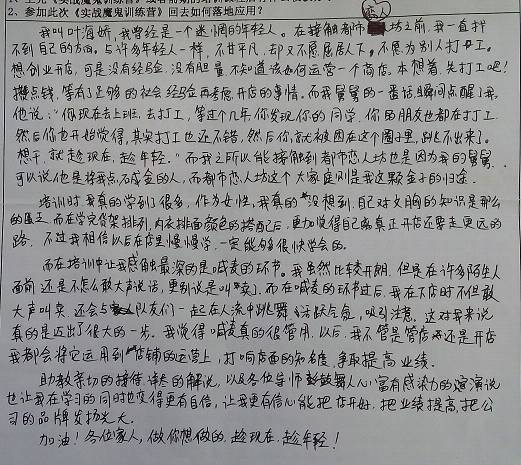 2、参加此次《实战魔鬼训练营》回去如何落地应用?
我叫叶海娇,我曾经是一个迷惘的年轻人。在接触都市恋人坊之前,我一直找
不到自己的方向。与许多年轻人一样,不甘平凡,却又不愿居居人下。不愿为别人打工。
想创业开店,可是没有经验,没有胆量,不知道该如何运营一个商店。本想着,先打工吧!
攒点钱,等有了足够的社会经验再考虑开店的事情。而我舅舅的一番话瞬间点醒了我,
他说:"你现在去上班,去打工,等过个几年你发现你的同学,你的朋友也都在打工,
然后你也开始觉得,其实打工也还不错,然后你就被困在这个圈子里,跳不出来了。
想干,就趁现在,趁年轻。"而我之所以能接触到都市恋人坊也是因为我的舅舅,
可以说他是将我点石成金的人,而都市恋人坊这个大家庭则是我这颗金子的归途。
培训时我真的学到了很多,作为女性,我真的没想到,自己对文胸的知识是那么
的匮乏,而在学完货架排列,内衣排面颜色的搭配后,更加觉得自己离真正开店还要走更远的
路。不过我相信以后在店里慢慢学,一定能够很快学会的。
而在培训中让我感触最深的是喊麦的环节。我虽然比较开朗,但是在许多陌生人
面前还是不怎么敢大声说话,更别说是叫卖了。而在喊麦的环节过后,我在下店时不但敢
大声叫卖,还会与队友们一起在人流中跳舞,活跃气氛,吸引注意。这对我来说
真的是迈出了很大的一步。我觉得喊麦真的很管用,以后,我不管是管店还是开店
我都会将它运用到店铺的运营上,打响店面的知名度,争取提高业绩。
助教亲切的接待,详尽的解说,以及各位导师鼓舞人心,富有感染力的演说
也让我在学习的同时也变得更有自信,让我更有信心能把店开好,把业绩提高,把公
司的品牌发扬光大。
加油!各位家人,做你想做的,趁现在,趁年轻!